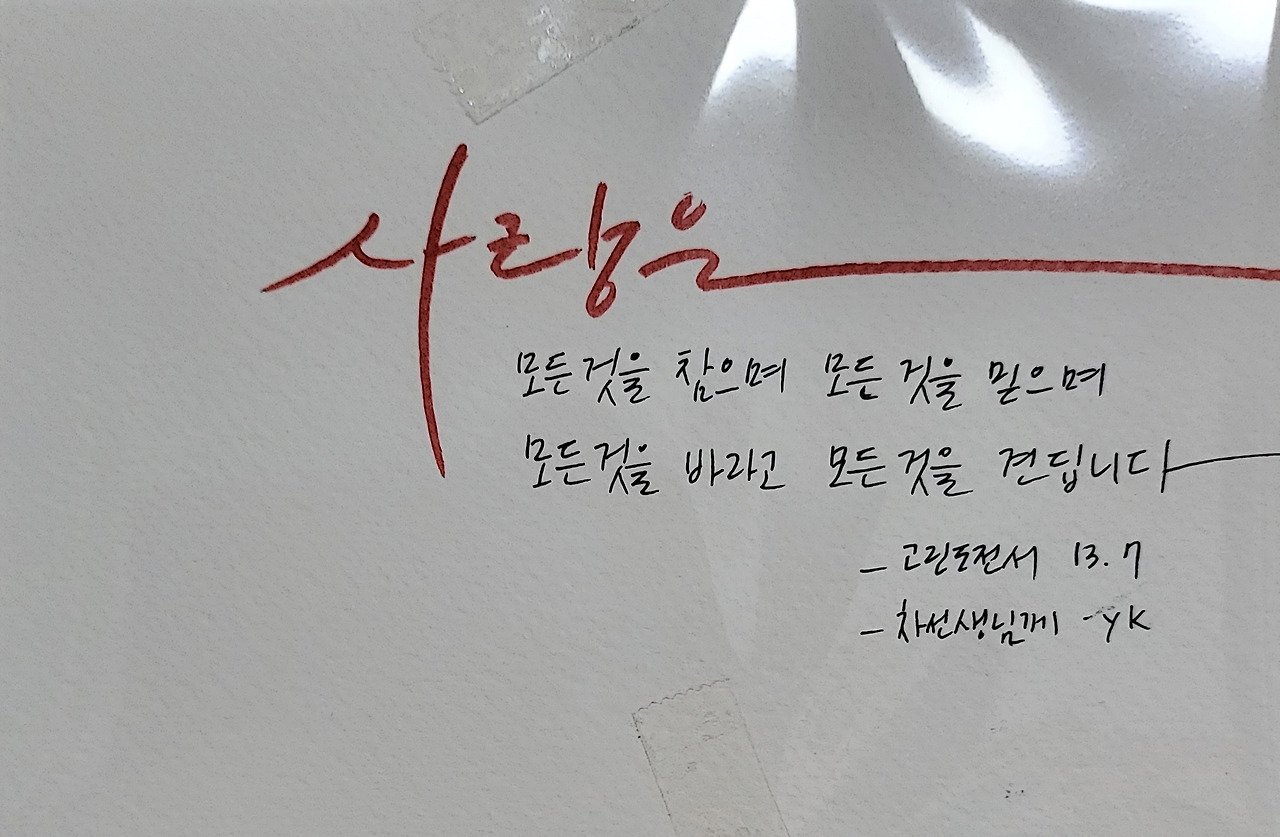 사랑은
모든것을 참으며 모든 것을 믿으며
모든것을 바라고 모든 것을 견딥니다
- 고린도전서 13. 7
- 차선생님께 -yk